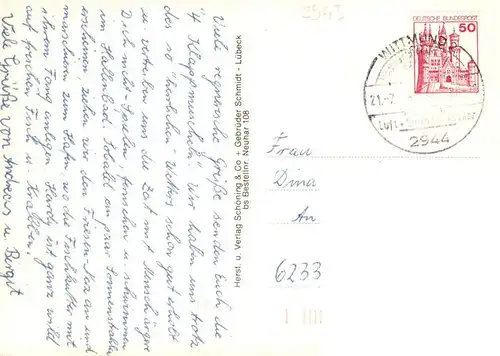 Viele regnerische Grüße senden Euch die
"4 Klappmenschen". Wir haben uns trotz
des "herrlichen" Wetters schon gut erholt
u. vertreiben uns die Zeit mit Mensch ärgere
Dich nicht-Spielen, forschen u. schwimmen
im Hallenbad. Sobald ein paar Sonnenstrahlen
erscheinen, ziehen wir den Friesen-Nerz an und
marschieren zum Hafen, wo die Fischkutter mit
ihrem Fang anlegen. Hardy ist ganz wild
auf frischen Fisch u. Krabben.
Viele Grüße von Andreas u. Birgit
Herst. u. Verlag Schöning & Co + Gebrüder Schmidt - Lübeck
bs Bestellnr. Neuhar 108
DEUTSCHE BUNDESPOST
50
WITTMUND 2
21.-7
Luft
2944
Frau
Dina
An
6233